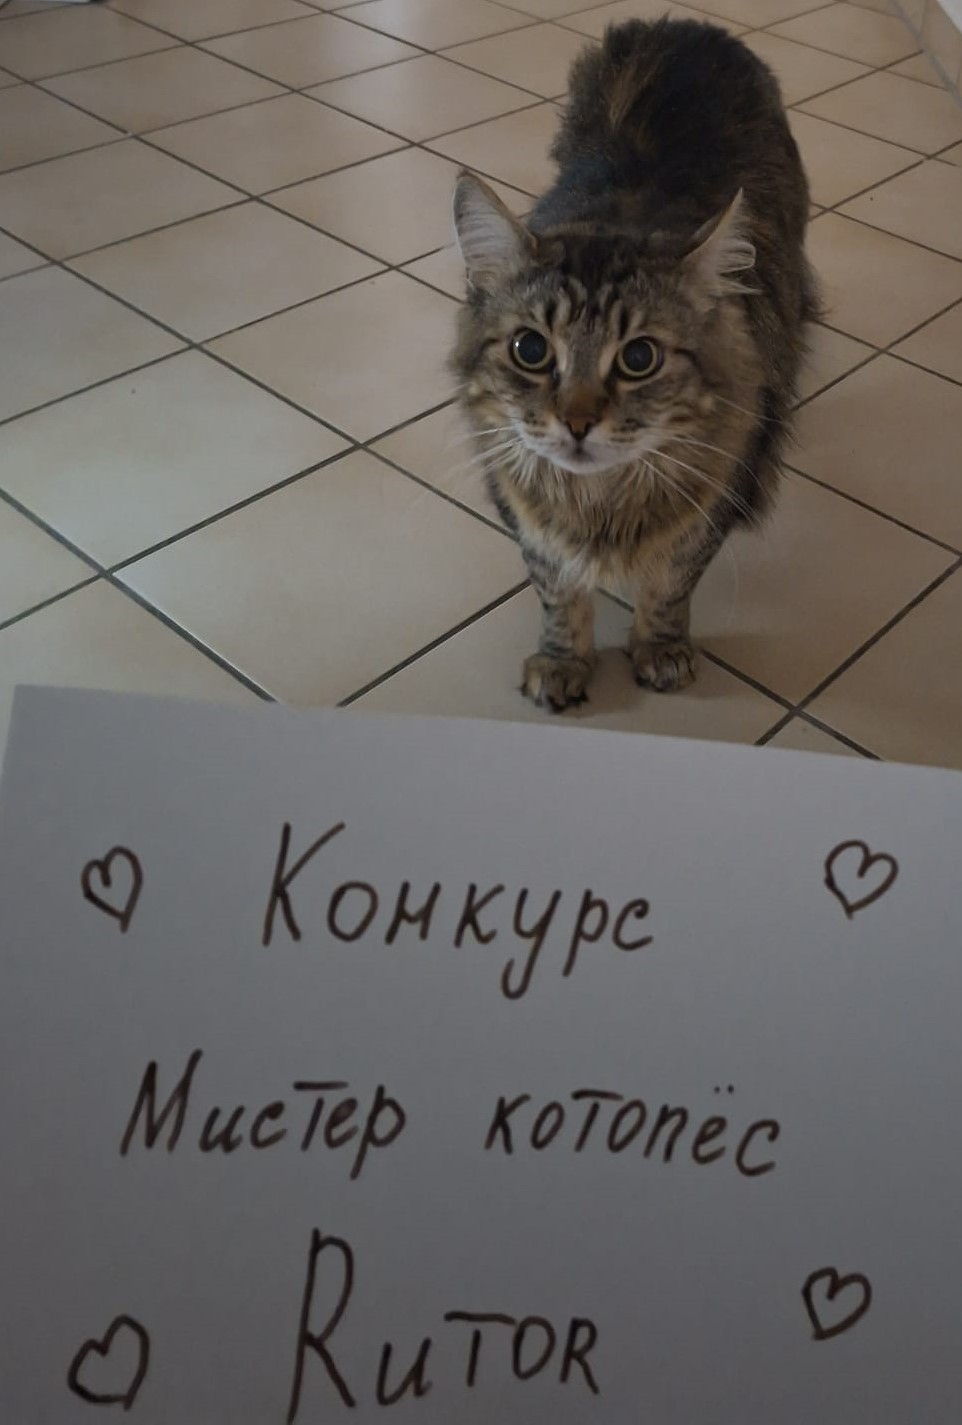 Конкурс
Мистер котопёс
RuTOR